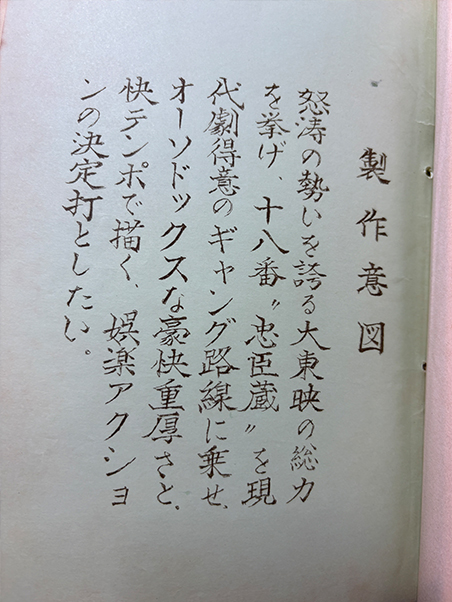 製作意図
怒涛の勢いを誇る大東映の総力
を挙げ、十八番〝忠臣蔵〟を現
代劇得意のギャング路線に乗せ、
オーソドックスな豪快重厚さと、
快テンポで描く、娯楽アクショ
ンの決定打としたい。